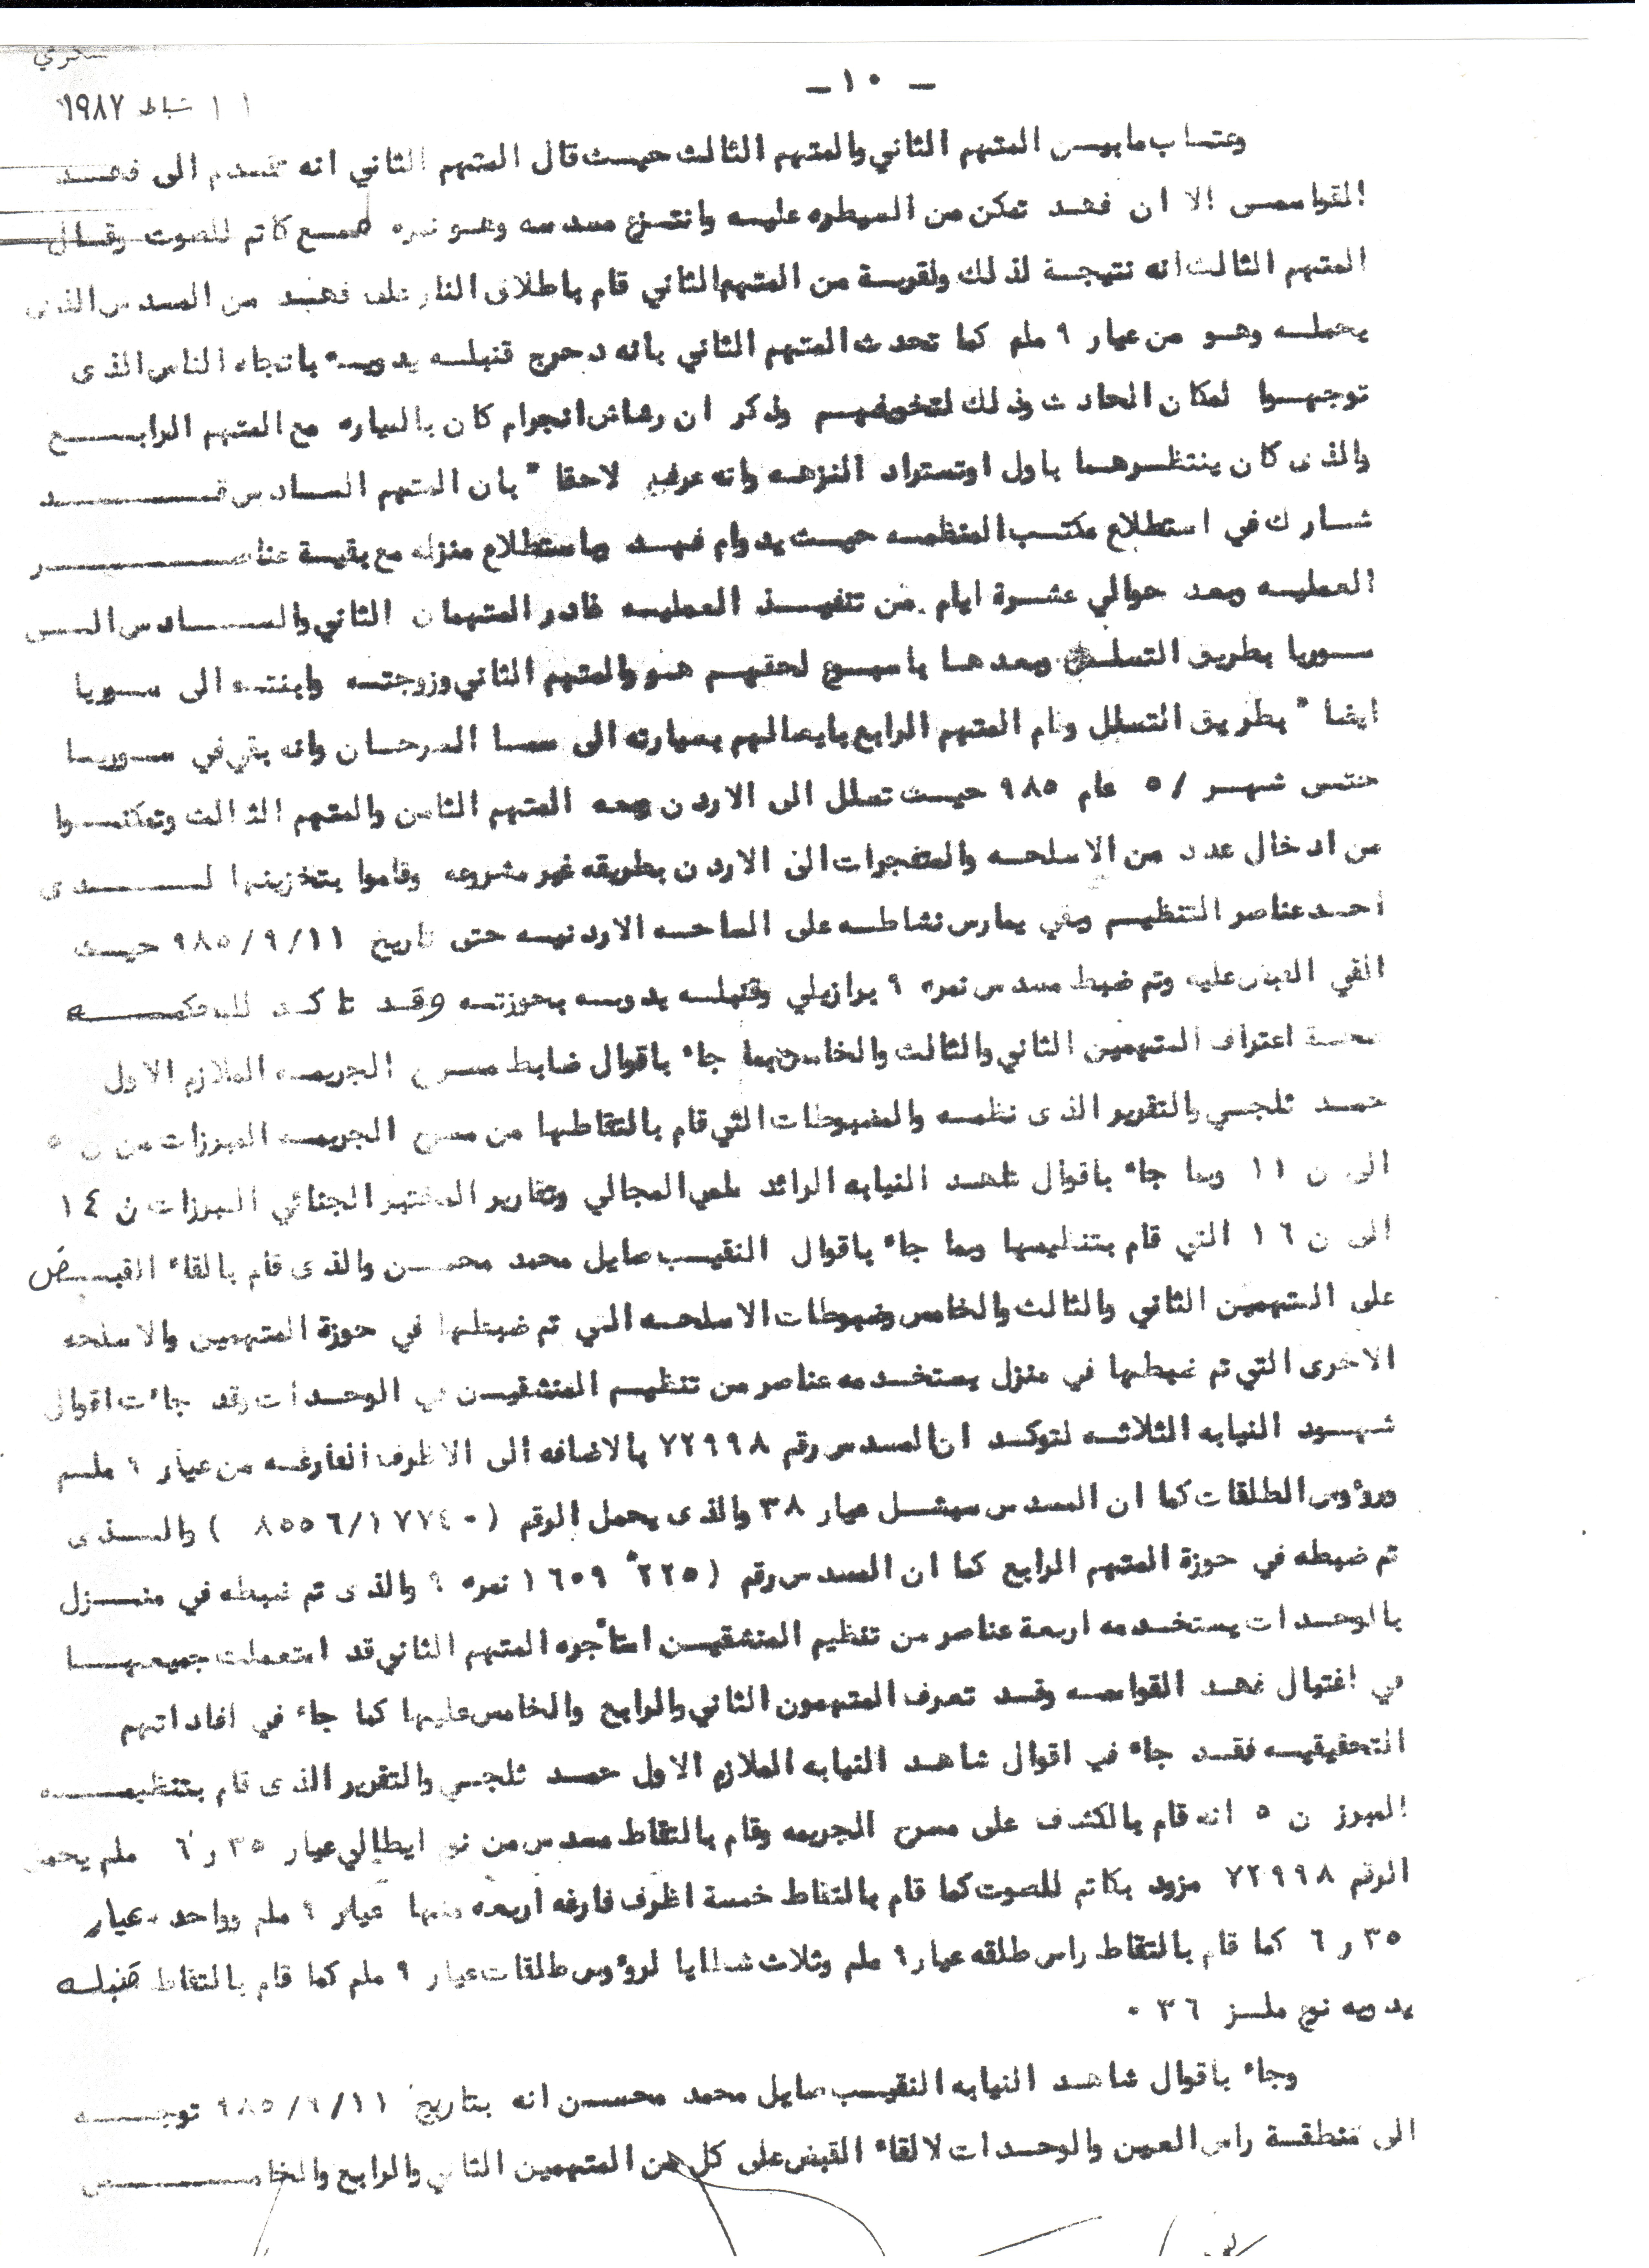 - ١٠ -
١١ شباط ١٩٨٧
المتهم الثاني والمتهم الثالث حيث قال المتهم الثاني انه تقدم الى فهد
القواسمي الا ان فهد تمكن من السيطره عليه وانتزع مسدسه وهو نمره كاتم للصوت وقال
المتهم الثالث انه نتيجة لذلك ولقوبة من المتهم الثاني قام باطلاق النار على فهد من المسدس الذى
يحمله وهو من عيار ٩ ملم كما تحدث المتهم الثاني بانه دحرج قنبله يدويه باتجاه الناس الذى
توجهوا لمكان الحادث وذلك لتخويفهم وذكر ان رشاش انجرام كان بالسياره مع المتهم الرابع
والذى كان ينتظرهما باول اوتستراد النزهه وانه عرف لاحقا " بان المتهم السادس قد
شارك في استطلاع مكتب المنظمه حيث يداوم فهد وباستطلاع منزله مع بقية عناصر
العمليه وبعد حوالي عشرة ايام من تنفيذ العمليه غادر المتهمان الثاني والسادس الى
سوريا بطريق التسلل وبعدها باسبوع لحقهم هو والمتهم الثاني وزوجته وابنته الى سوريا
ايضا " بطريق التسلل وقام المتهم الرابع بايصالهم بسيارته الى سما السرحان وانه بقي في سوريا
حتى شهر / ٥ عام ٩٨٥ حيث تسلل الى الاردن ومعه المتهم الثامن والمتهم الثالث وتمكنوا
من ادخال عدد من الاسلحه والمتفجرات الى الاردن بطريقه غير مشروعه وقاموا بتخزينها لدى
احد عناصر التنظيم وبقي يمارس نشاطه على الساحه الاردنيه حتى تاريخ ٩٨٥/٩/١١ حيث
القي القبض عليه وتم ضبط مسدس نمره ٩ برازيلي وقنبله يدويه بحوزته وقد تاكد للمحكمه
صحة اعتراف المتهمين الثاني والثالث والخامس بما جاء باقوال ضابط مسرح الجريمه الملازم الاول
حمد ثلجي والتقرير الذى نظمه والمضبوطات التي قام بالتقاطها من مسرح الجريمه المبرزات من ن ٥
الى ن ١١ وبما جاء باقوال شاهد النيابه الرائد المجالي وتقارير المختبر الجنائي المبرزات ن ١٤
الى ن ١٦ التي قام بتنظيمها وبما جاء باقوال النقيب صايل محمد محسن والذى قام بالقاء القبض
على المتهمين الثاني والثالث والخامس وضبوطات الاسلحه التي تم ضبطها في حوزة المتهمين والاسلحه
الاخرى التي تم ضبطها في منزل يستخدمه عناصر من تنظيم المنشقين في الوحدات وقد جاءت اقوال
شهود النيابه الثلاثه لتوكد ان المسدس رقم ٧٢٩٩٨ بالاضافه الى الاظرف الفارغه من عيار ٩ ملم
ورؤوس الطلقات كما ان المسدس سميثل عيار ٣٨ والذى يحمل الرقم ( ٨٥٥٦/١٧٧٤٠ ) والذى
تم ضبطه في حوزة المتهم الرابع كما ان المسدس رقم ( ٢٢٥ ١٦٥٩ نمره ٩ والذى تم ضبطه في منزل
بالوحدات يستخدمه اربعة عناصر من تنظيم المنشقين استأجره المتهم الثاني قد استعملت جميعها
في اغتيال فهد القواسمه وقد تعرف المتهمون الثاني والرابع والخامس عليها كما جاء في افاداتهم
التحقيقيه فقد جاء في اقوال شاهد النيابه الملازم الاول حمد ثلجي والتقرير الذى قام بتنظيمه
المبرز ن ٥ انه قام بالكشف على مسرح الجريمه وقام بالتقاط مسدس من نوع ايطالي عيار ٣٥ ر ٦ ملم يحمل
الرقم ٧٢٩٩٨ مزود بكاتم للصوت كما قام بالتقاط خمسة اظرف فارغه اربعه منها عيار ٩ ملم وواحد عيار
٣٥ ر ٦ كما قام بالتقاط راس طلقه عيار ٩ ملم وثلاث شظايا لرؤوس طلقات عيار ٩ ملم كما قام بالتقاط قنبله
يدويه نوع ملز ٣٦ .
وجاء باقوال شاهد النيابه النقيب صايل محمد محسن انه بتاريخ ٩٨٥/٩/١١ توجه
الى منطقة راس العين والوحدات لالقاء القبض على كل من المتهمين الثاني والرابع والخامس